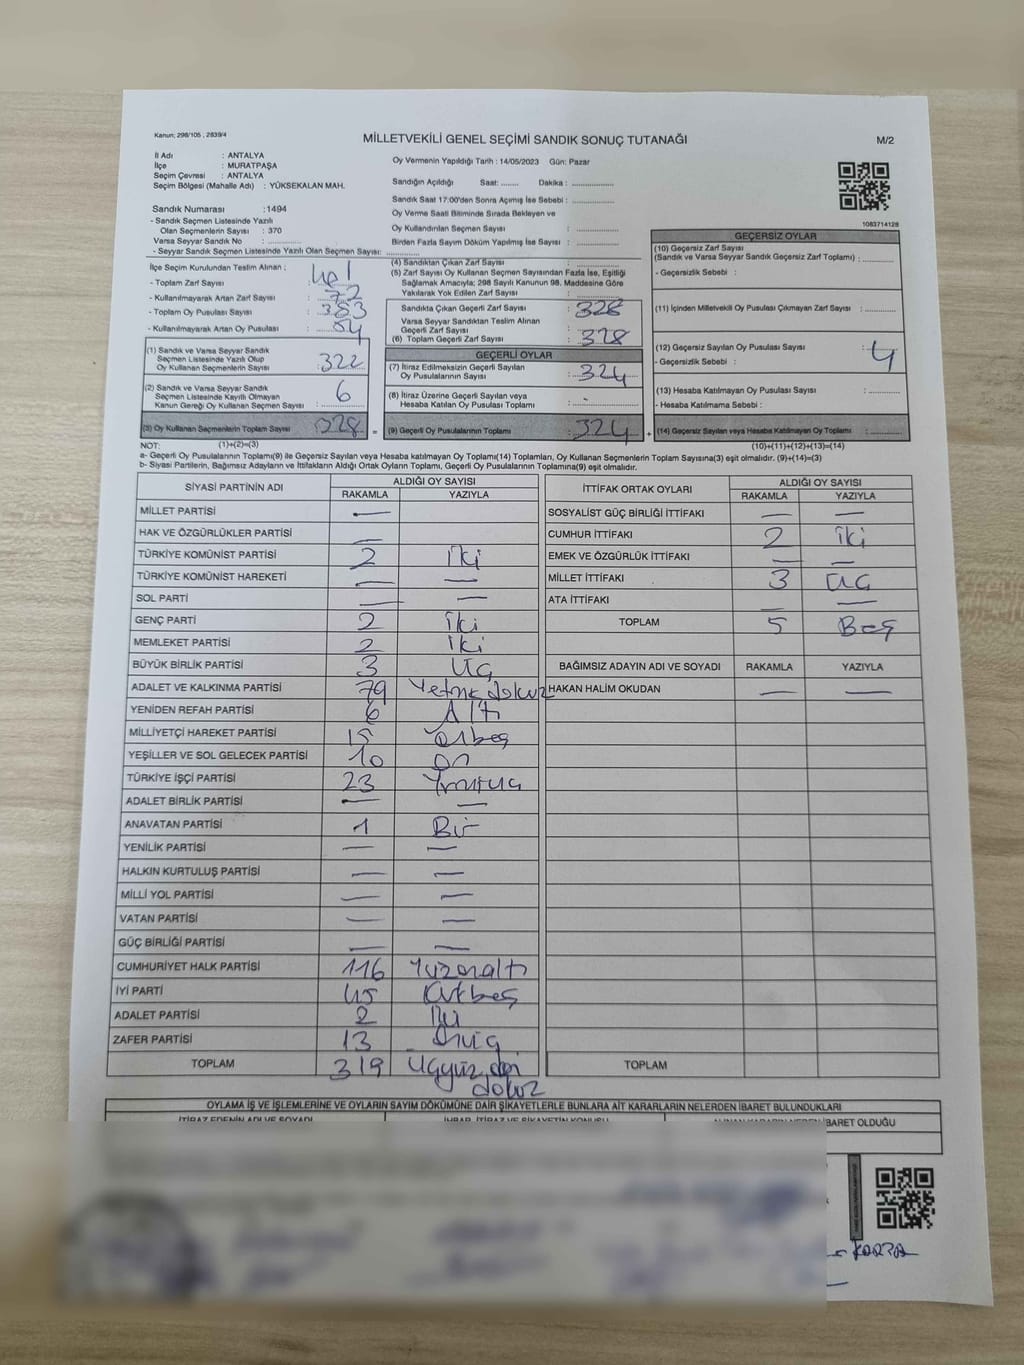 Kanun: 298/105 , 2839/4
MİLLETVEKİLİ GENEL SEÇİMİ SANDIK SONUÇ TUTANAĞI
M/2
İl Adı : ANTALYA
İlçe : MURATPAŞA
Seçim Çevresi : ANTALYA
Seçim Bölgesi (Mahalle Adı) : YÜKSEKALAN MAH.
Oy Vermenin Yapıldığı Tarih : 14/05/2023 Gün: Pazar
Sandığın Açıldığı Saat: ........ Dakika : ................
Sandık Saat 17:00'den Sonra Açımış İse Sebebi : ................
Oy Verme Saati Bitiminde Sırada Bekleyen ve
Oy Kullandırılan Seçmen Sayısı : ................
Birden Fazla Sayım Döküm Yapılmış İse Sayısı : ................
1083714128
Sandık Numarası :1494
- Sandık Seçmen Listesinde Yazılı
Olan Seçmenlerin Sayısı : 370
Varsa Seyyar Sandık No : ................
- Seyyar Sandık Seçmen Listesinde Yazılı Olan Seçmen Sayısı: ................
İlçe Seçim Kurulundan Teslim Alınan :
- Toplam Zarf Sayısı
- Kullanılmayarak Artan Zarf Sayısı : 72
- Toplam Oy Pusulası Sayısı : 383
- Kullanılmayarak Artan Oy Pusulası : 54
(1) Sandık ve Varsa Seyyar Sandık
Seçmen Listesinde Yazılı Olup
Oy Kullanan Seçmenlerin Sayısı : 322
(2) Sandık ve Varsa Seyyar Sandık
Seçmen Listesinde Kayıtlı Olmayan
Kanun Gereği Oy Kullanan Seçmen Sayısı : 6
(3) Oy Kullanan Seçmenlerin Toplam Sayısı : 328
(1)+(2)=(3)
(4) Sandıktan Çıkan Zarf Sayısı : ................
(5) Zarf Sayısı Oy Kullanan Seçmen Sayısından Fazla İse, Eşitliği
Sağlamak Amacıyla; 298 Sayılı Kanunun 98. Maddesine Göre
Yakılarak Yok Edilen Zarf Sayısı : ................
Sandıkta Çıkan Geçerli Zarf Sayısı : 328
Varsa Seyyar Sandıktan Teslim Alınan
Geçerli Zarf Sayısı
(6) Toplam Geçerli Zarf Sayısı : 328
GEÇERLİ OYLAR
(7) İtiraz Edilmeksizin Geçerli Sayılan
Oy Pusulalarının Sayısı : 324
(8) İtiraz Üzerine Geçerli Sayılan veya
Hesaba Katılan Oy Pusulası Toplamı : -
= (9) Geçerli Oy Pusulalarının Toplamı : 324
GEÇERSİZ OYLAR
(10) Geçersiz Zarf Sayısı
(Sandık ve Varsa Seyyar Sandık Geçersiz Zarf Toplamı) : ............
- Geçersizlik Sebebi :
(11) İçinden Milletvekili Oy Pusulası Çıkmayan Zarf Sayısı : ............
(12) Geçersiz Sayılan Oy Pusulası Sayısı : 4
- Geçersizlik Sebebi :
(13) Hesaba Katılmayan Oy Pusulası Sayısı : ............
- Hesaba Katılmama Sebebi :
+ (14) Geçersiz Sayılan veya Hesaba Katılmayan Oy Toplamı : ............
(10)+(11)+(12)+(13)=(14)
NOT:
a- Geçerli Oy Pusulaları Toplamı(9) ile Geçersiz Sayılan veya Hesaba katılmayan Oy Toplamı(14) Toplamları, Oy Kullanan Seçmenlerin Toplam Sayısına(3) eşit olmalıdır. (9)+(14)=(3)
b- Siyasi Partilerin, Bağımsız Adayların ve İttifakların Aldığı Ortak Oyların Toplamı, Geçerli Oy Pusulalarının Toplamına(9) eşit olmalıdır.
SİYASİ PARTİNİN ADI ALDIĞI OY SAYISI
RAKAMLA YAZIYLA
MİLLET PARTİSİ —
HAK VE ÖZGÜRLÜKLER PARTİSİ —
TÜRKİYE KOMÜNİST PARTİSİ 2 İki
TÜRKİYE KOMÜNİST HAREKETİ — —
SOL PARTİ — —
GENÇ PARTİ 2 İki
MEMLEKET PARTİSİ 2 İki
BÜYÜK BİRLİK PARTİSİ 3 Üç
ADALET VE KALKINMA PARTİSİ 79 Yetmiş dokuz
YENİDEN REFAH PARTİSİ 6 Altı
MİLLİYETÇİ HAREKET PARTİSİ 15 Onbeş
YEŞİLLER VE SOL GELECEK PARTİSİ 10 On
TÜRKİYE İŞÇİ PARTİSİ 23 Yirmiüç
ADALET BİRLİK PARTİSİ — —
ANAVATAN PARTİSİ 1 Bir
YENİLİK PARTİSİ — —
HALKIN KURTULUŞ PARTİSİ — —
MİLLİ YOL PARTİSİ — —
VATAN PARTİSİ — —
GÜÇ BİRLİĞİ PARTİSİ — —
CUMHURİYET HALK PARTİSİ 116 Yüzonaltı
İYİ PARTİ 45 Kırkbeş
ADALET PARTİSİ 2 İki
ZAFER PARTİSİ 13 Onüç
TOPLAM 319 Üçyüz on dokuz
İTTİFAK ORTAK OYLARI ALDIĞI OY SAYISI
RAKAMLA YAZIYLA
SOSYALİST GÜÇ BİRLİĞİ İTTİFAKI — —
CUMHUR İTTİFAKI 2 İki
EMEK VE ÖZGÜRLÜK İTTİFAKI — —
MİLLET İTTİFAKI 3 Üç
ATA İTTİFAKI — —
TOPLAM 5 Beş
BAĞIMSIZ ADAYIN ADI VE SOYADI RAKAMLA YAZIYLA
HAKAN HALİM OKUDAN — —
TOPLAM
OYLAMA İŞ VE İŞLEMLERİNE VE OYLARIN SAYIM DÖKÜMÜNE DAİR ŞİKAYETLERLE BUNLARA AİT KARARLARIN NELERDEN İBARET BULUNDUKLARI
İTİRAZ EDENİN ADI VE SOYADI
İHBAR, İTİRAZ VE ŞİKAYETİN KONUSU
İBARET OLDUĞU